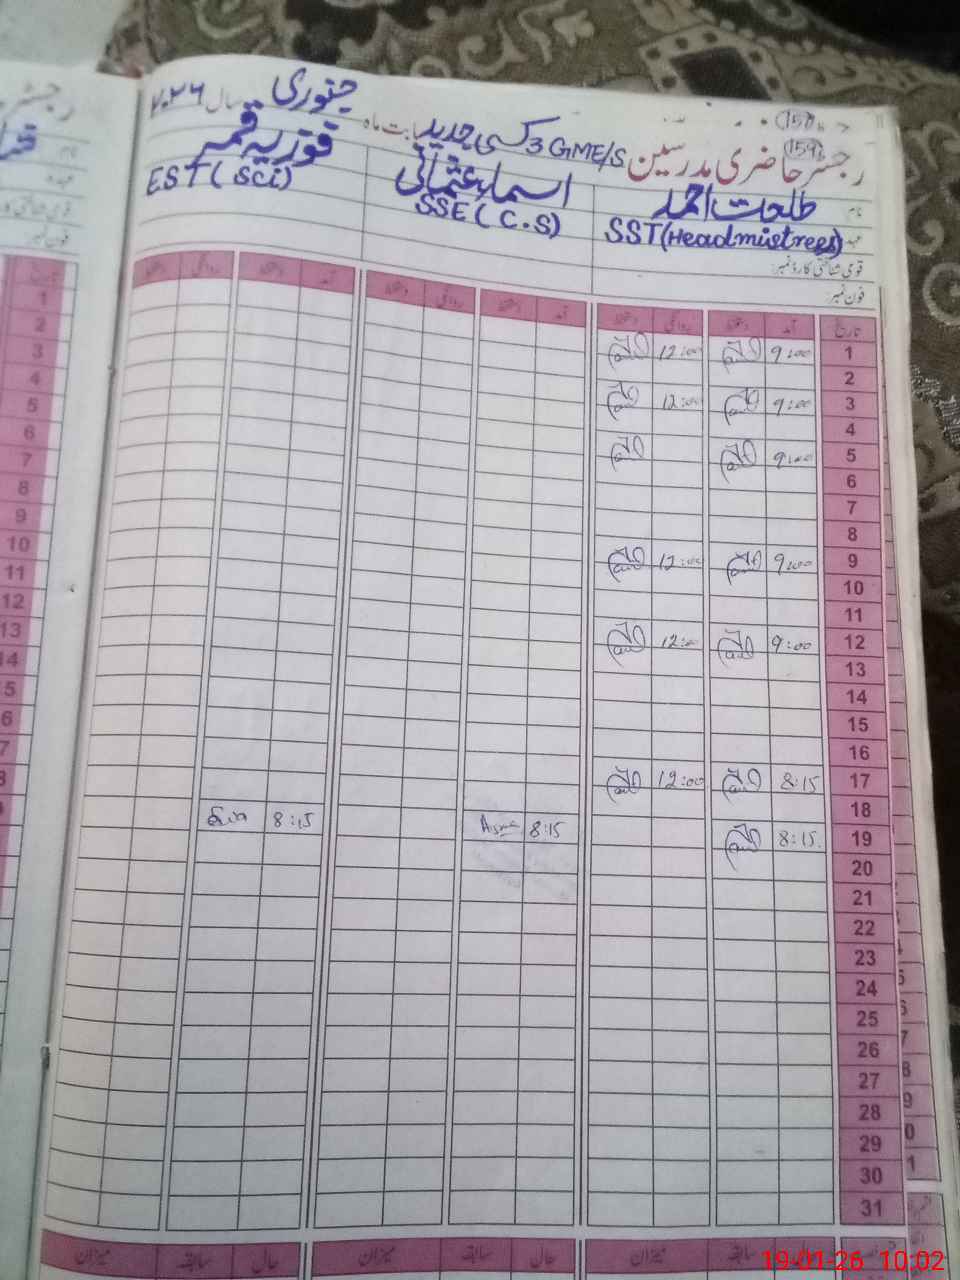 158
159
رجسٹر حاضری مدرسین GMES 3 کسی جدید بابت ماہ جنوری سال ۲۰۲۶
نام طلعت احمد اسماء عثمانی فوزیہ قمر
عہدہ SST(Headmistrees) SSE(C.S) EST(Sci)
قومی شناختی کارڈ نمبر:
فون نمبر:
تاریخ آمد دستخط روانگی دستخط آمد دستخط روانگی دستخط آمد دستخط روانگی دستخط
1 9:00 12:00
2
3 9:00 12:00
4
5 9:00
6
7
8
9 9:00 12:00
10
11
12 9:00 12:00
13
14
15
16
17 8:15 12:00
18
19 8:15 8:15 Asma 8:15
20
21
22
23
24
25
26
27
28
29
30
31
حال سابقہ میزان حال سابقہ میزان حال سابقہ میزان
19-01-26 10:02